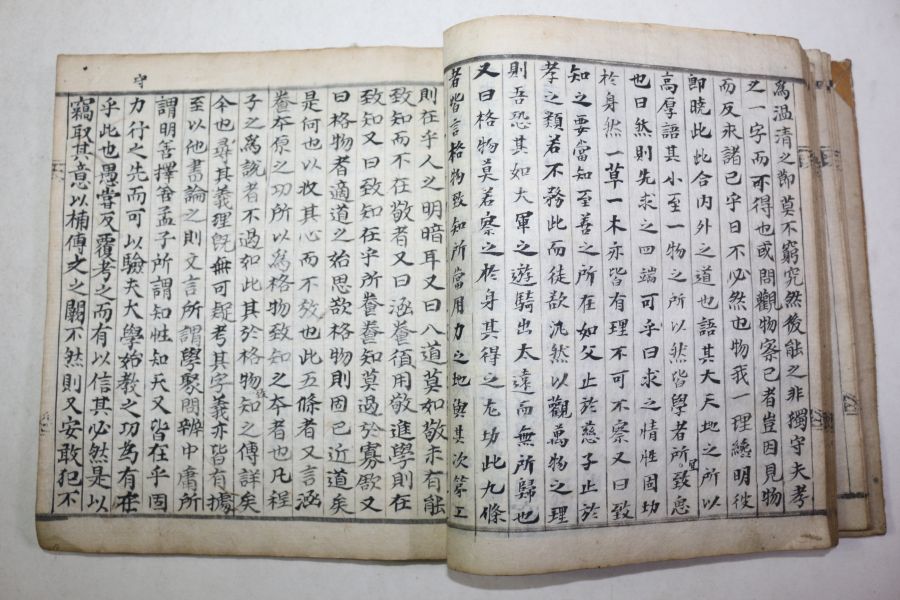 為溫凊之節莫不窮究然後能之非獨守夫孝
之一字而可得也或問觀物察己者豈因見物
而反求諸己乎曰不必然也物我一理纔明彼
即曉此此合內外之道也語其大天地之所以
高厚語其小至一物之所以然皆學者所宜致思
也曰然則先求之四端可乎曰求之情性固切
於身然一草一木亦皆有理不可不察又曰致
知之要當知至善之所在如父止於慈子止於
孝之類若不務此而徒欲汎然以觀萬物之理
則吾恐其如大軍之遊騎出太遠而無所歸也
又曰格物莫若察之於身其得之尤切此九條
者皆言格物致知所當用力之地與其次第工
則在乎人之明暗耳又曰入道莫如敬未有能
致知而不在敬者又曰涵養須用敬進學則在
致知又曰致知在乎所養養知莫過於寡欲又
曰格物者適道之始思欲格物則固已近道矣
是何也以收其心而不放也此五條者又言涵
養本原之功所以為格物致知之本者也凡程
子之為說者不過如此其於格物致知之傳詳矣
今也尋其義理既無可疑考其字義亦皆有據
至以他書論之則文言所謂學聚問辨中庸所
謂明善擇善孟子所謂知性知天又皆在乎固
守
力行之先而可以驗夫大學始教之功為有在
乎此也愚嘗反覆考之而有以信其必然是以
竊取其意以補傳文之闕不然則又安敢犯不